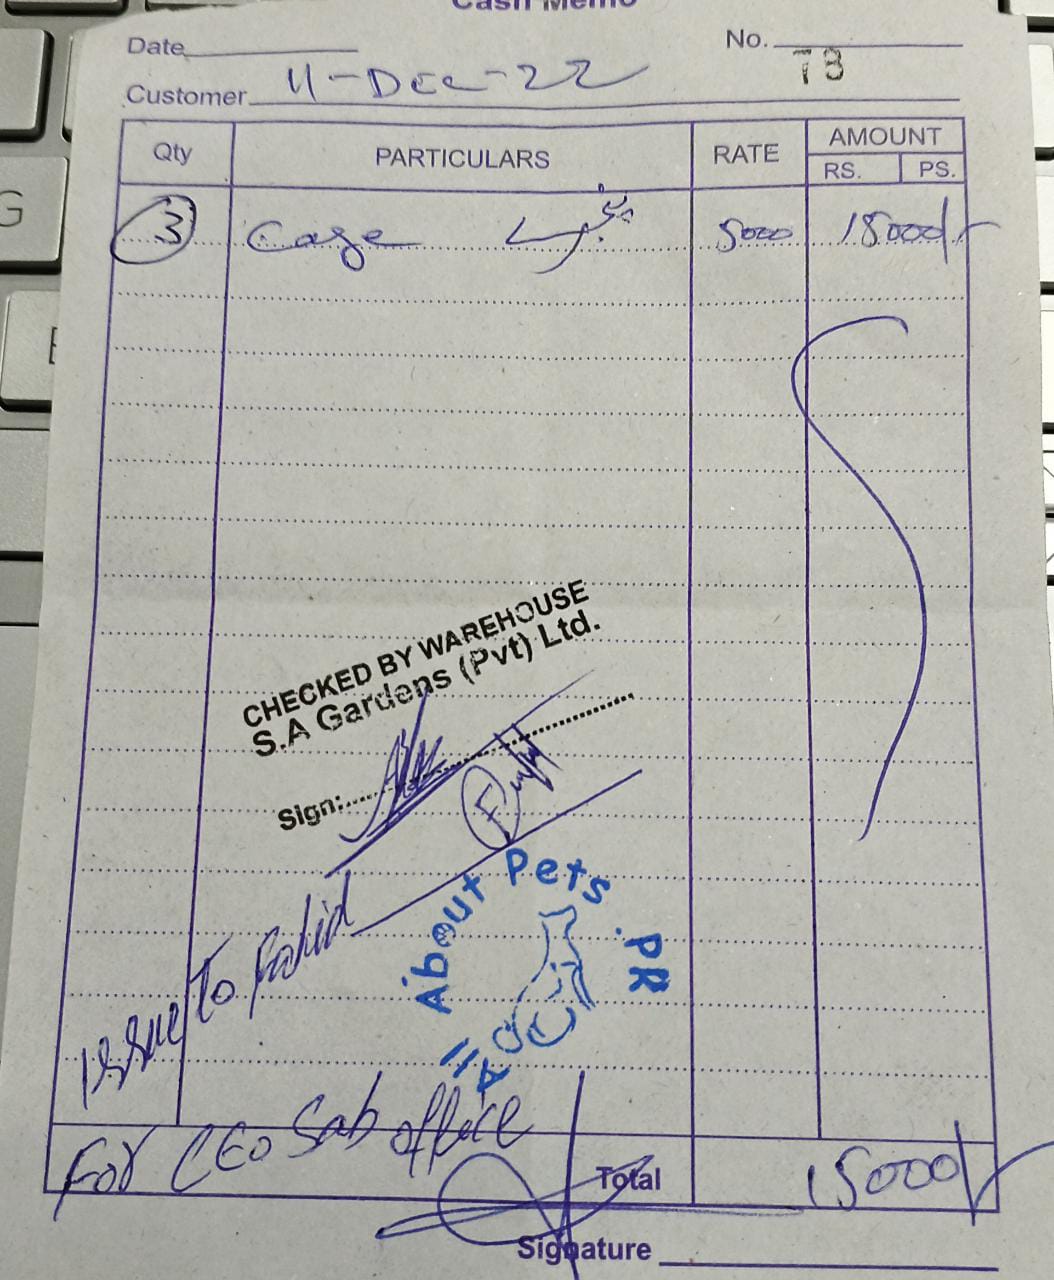 Cash Memo
Date
No. 78
Customer 11-Dec-22
Qty PARTICULARS RATE AMOUNT
RS. PS.
3 Cage 5000 15000/-
CHECKED BY WAREHOUSE
S.A Gardens (Pvt) Ltd.
Sign:
All About Pets. PR
Issue To Fahid
For CEO Sab office
Total 15000/-
Signature